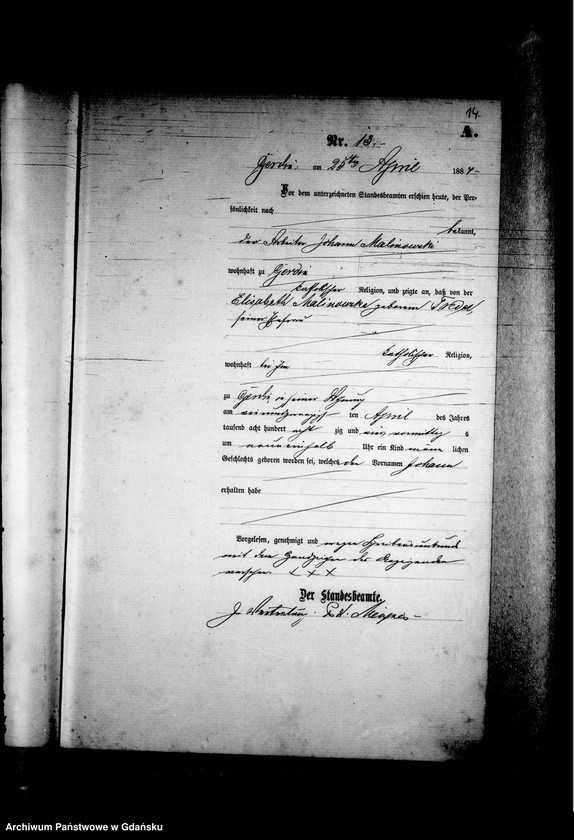 14.
A.
Nr. 13.
am 25ten April 188
Vor dem unterzeichneten Standesbeamten erschien heute, der Per-
sönlichkeit nach
bekannt,
der Arbeiter Johann Malinowski
wohnhaft zu
katholischer Religion, und zeigte an, daß von der
Elisabeth Malinowska geborenen
seiner Ehefrau
katholischer Religion,
wohnhaft bei ihm
zu in seiner Wohnung
am ten April des Jahres
tausend acht hundert acht zig und vormittags
um neun einhalb Uhr ein Kind männ lichen
Geschlechts geboren worden sei, welches den Vornamen Johann
erhalten habe
Vorgelesen, genehmigt und wegen Schreibensunkunde
mit dem Handzeichen des Anzeigenden
versehen + + +
Der Standesbeamte.
Archiwum Państwowe w Gdańsku